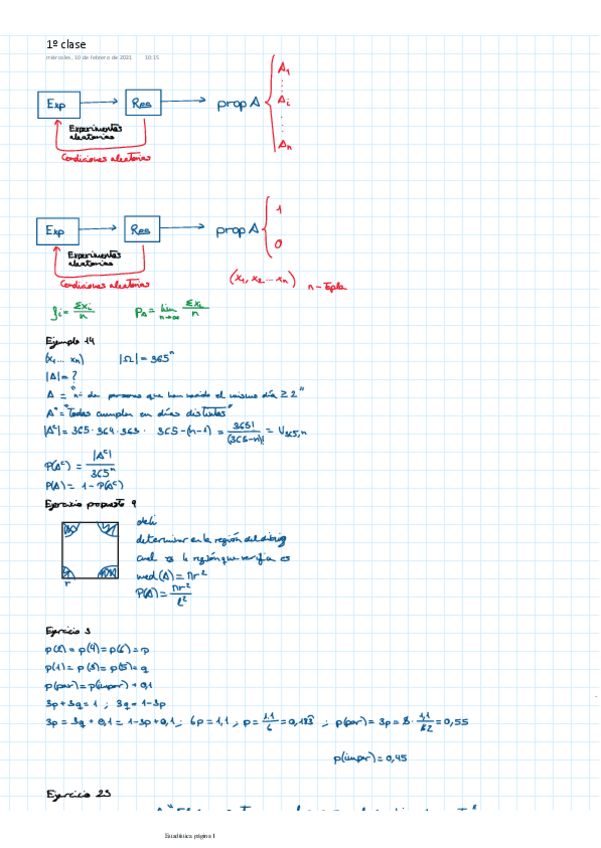 1º clase
miércoles, 10 de febrero de 2021 10:15
Exp Res prop A A₁ ... Aᵢ ... Aₙ
Experimentos
aleatorios
Condiciones aleatorias
Exp Res prop A 1 0
Experimentos
aleatorios
Condiciones aleatorias
(x₁, x₂ ... xₙ) n-tupla
fᵢ = Σxᵢ/n P_A = lim n→∞ Σxᵢ/n
Ejemplo 14
(x₁... xₙ) |Ω| = 365ⁿ
|A| = ?
A = "nº de personas que han nacido el mismo día ≥ 2"
Aᶜ = "Todos cumplen en días distintos"
|Aᶜ| = 365 · 364 · 363 · 365-(n-1) = 365!/(365-n)! = V₃₆₅,ₙ
P(Aᶜ) = |Aᶜ|/365ⁿ
P(A) = 1 - P(Aᶜ)
Ejercicio propuesto 9
determinar en la región del dibujo
cual es la región que verifica es
med(A) = πr²
r
P(A) = πr²/l²
Ejercicio 3
p(2) = p(4) = p(6) = p
p(1) = p(3) = p(5) = q
p(par) = p(impar) + 0,1
3p + 3q = 1 ; 3q = 1 - 3p
3p = 3q + 0,1 = 1 - 3p + 0,1 ; 6p = 1,1 ; p = 1,1/6 = 0,183 ; p(par) = 3p = 3 · 1,1/6 = 0,55
p(impar) = 0,45
Ejercicio 23
Estadística página 1